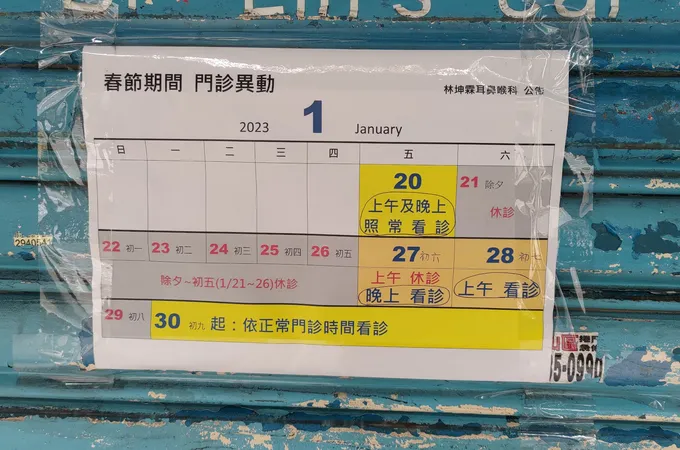 Dr. Lin's Ear
春節期間 門診異動
林坤霖耳鼻喉科 公告
2023 1 January
日 一 二 三 四 五 六
20 21 除夕
上午及晚上 休診
照常看診
22 初一 23 初二 24 初三 25 初四 26 初五 27 初六 28 初七
除夕~初五(1/21~26)休診 上午 休診 上午 看診
晚上 看診
29 初八 30 初九 起:依正常門診時間看診
5-0990